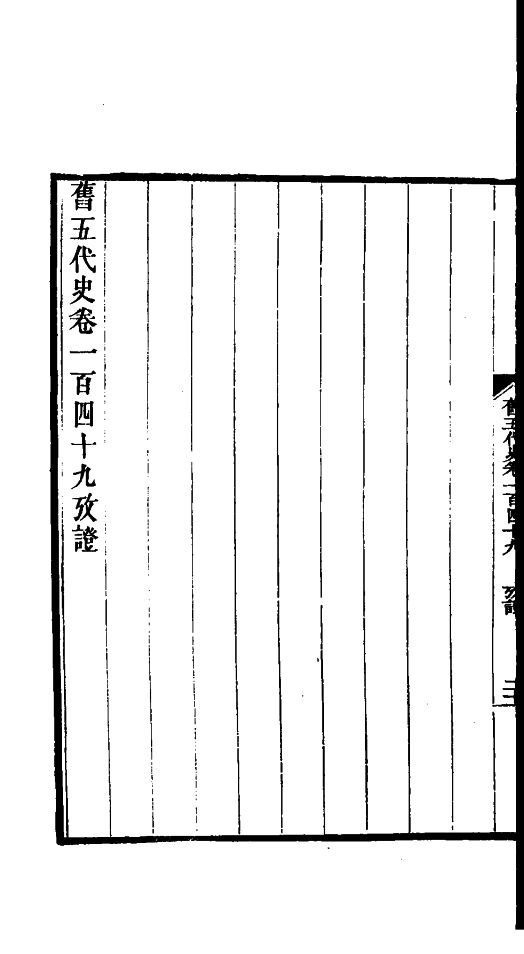 舊五代史卷一百四十九 攷證 三
舊五代史卷一百四十九攷證